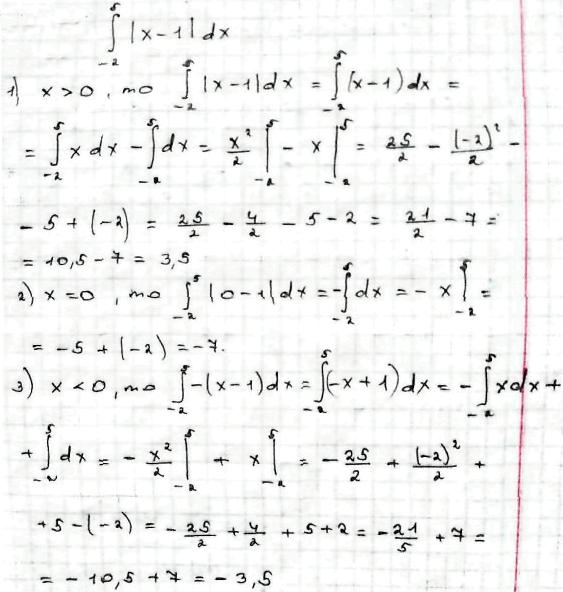 ∫₋₂⁵ |x-1| dx
1) x > 0, то ∫₋₂⁵ |x-1| dx = ∫₋₂⁵ (x-1) dx =
= ∫₋₂⁵ x dx - ∫₋₂⁵ dx = x²/2 |₋₂⁵ - x |₋₂⁵ = 25/2 - (-2)²/2 -
- 5 + (-2) = 25/2 - 4/2 - 5 - 2 = 21/2 - 7 =
= 10,5 - 7 = 3,5
2) x = 0, то ∫₋₂⁵ |0-1| dx = -∫₋₂⁵ dx = - x |₋₂⁵ =
= -5 + (-2) = -7.
3) x < 0, то ∫₋₂⁵ -(x-1) dx = ∫₋₂⁵ (-x+1) dx = - ∫₋₂⁵ x dx +
+ ∫₋₂⁵ dx = - x²/2 |₋₂⁵ + x |₋₂⁵ = - 25/2 + (-2)²/2 +
+ 5 - (-2) = - 25/2 + 4/2 + 5 + 2 = - 21/5 + 7 =
= - 10,5 + 7 = - 3,5